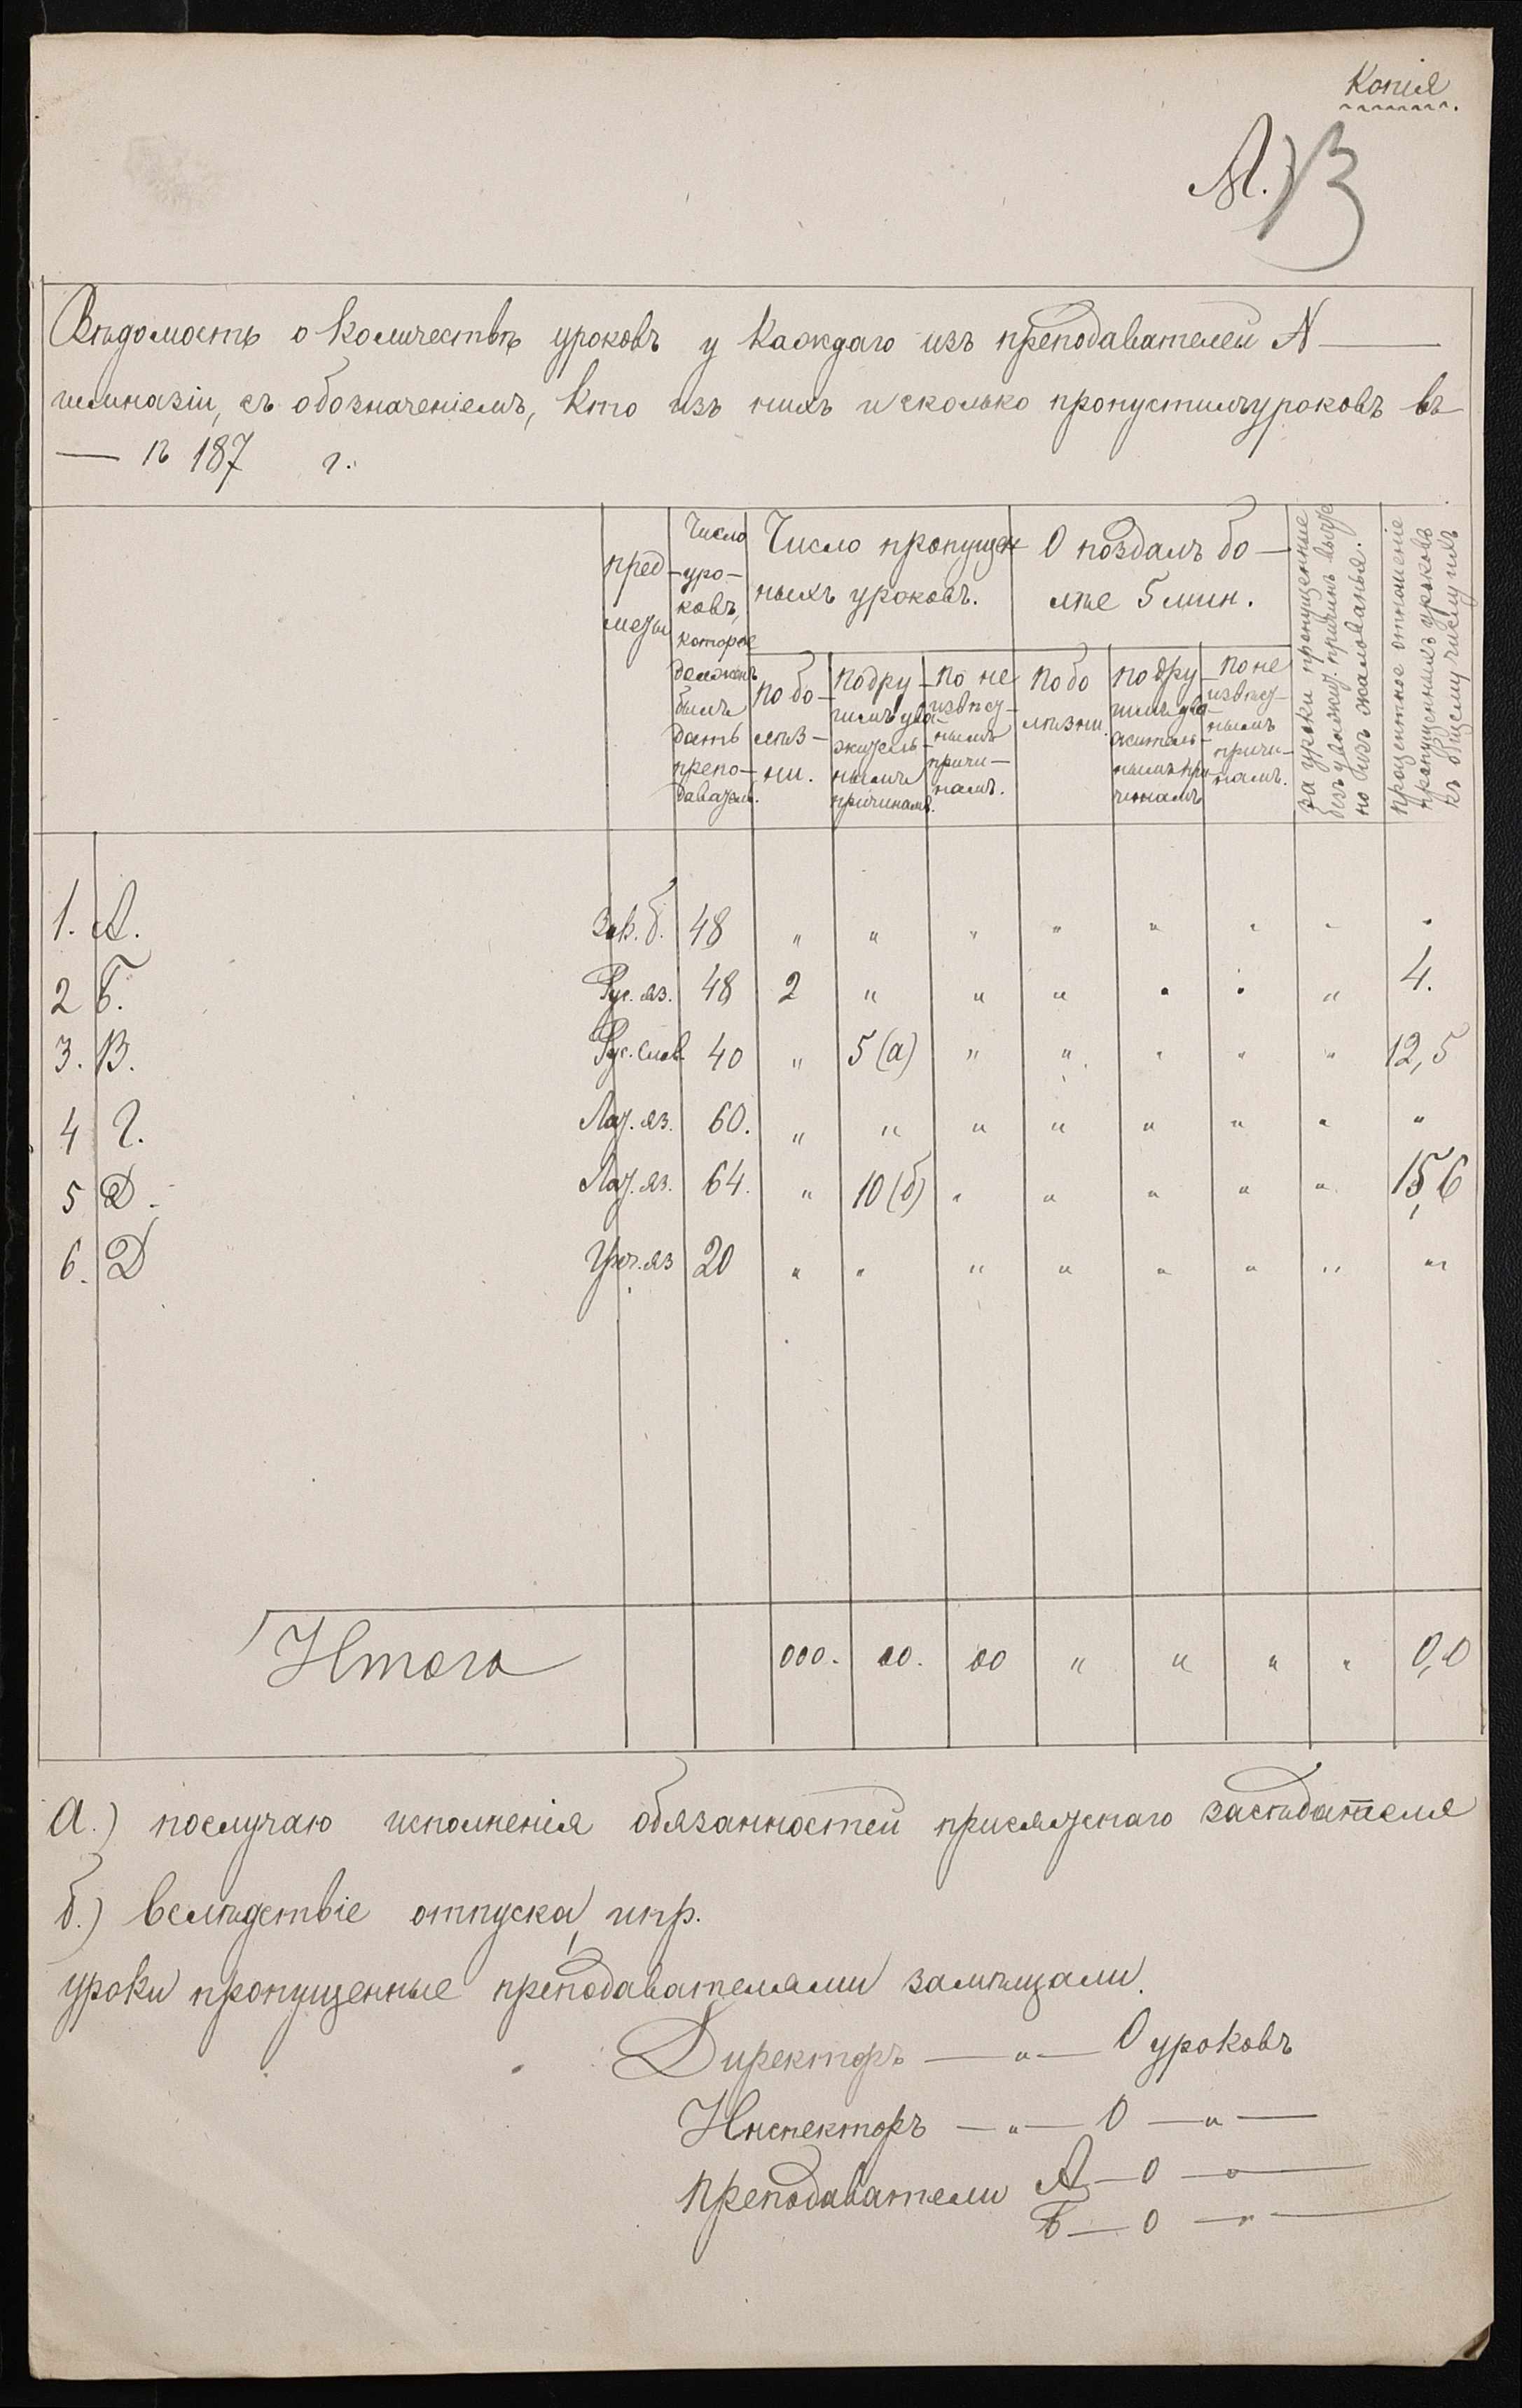 Копія
А.) В
Вѣдомость о количествѣ уроковъ у каждаго изъ преподавателей N —
гимназіи, съ обозначеніемъ, кто изъ нихъ и сколько пропустилъ уроковъ въ
— 187 г.
Пред-
меты
Число
уро-
ковъ,
которое
долженъ
былъ
дать
препо-
даватель.
Число пропущен
ныхъ уроковъ.
По бо-
лѣз-
ни.
По дру-
гимъ ува-
житель-
нымъ
причинамъ.
По не
извѣст-
нымъ
причи-
намъ.
Опоздалъ бо-
лѣе 5 мин.
По бо
лѣзни.
По дру-
гимъ ува-
житель-
нымъ при-
чинамъ
По не
извѣст-
нымъ
причи-
намъ.
За уроки пропущенные
безъ уважит. причинъ вычте
но изъ жалованья.
Процентное отношеніе
пропущенныхъ уроковъ
къ общему числу ихъ
1. А. Зак. б. 48 " " " " " " " "
2 Б. Рус. яз. 48 2 " " " " " " 4.
3. В. Рус. слов. 40 " 5 (а) " " " " " 12,5
4 Г. Лат. яз. 60. " " " " " " " "
5 Д. Лат. яз. 64. " 10 (б) " " " " " 15,6
6. Д Греч. яз 20 " " " " " " " "
Итого 000. 00. 00 " " " " 0,0
а.) по случаю исполненія обязанностей присяжнаго засѣдателя
б.) вслѣдствіе отпуска, и пр.
уроки пропущенные преподавателями замѣщали.
Директоръ — " — 0 уроковъ
Инспекторъ — " — 0 — " —
Преподаватели А — 0 — " —
Б — 0 — " —